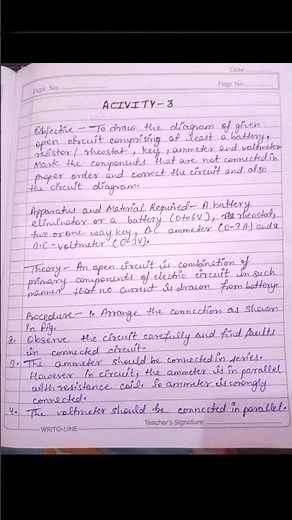 Date
Expt. No.
Page No.
ACIVITY-3
Objective - To draw the diagram of given
open circuit comprising at least a battery,
resistor/rheostat, key, ammeter and voltmeter
Mark the components that are not connected in
proper order and correct the circuit and also
the circuit diagram.
Apparatus and Material Required - A battery
eliminator or a battery (0 to 6V), rheostat,
two or one way key, ammeter (0-3A) and a
D.C - voltmeter (0-3V).
Theory - An open circuit is combination of
primary components of electric circuit in such
manner that no current is drawn from battery
Procedure - 1. Arrange the connection as shown
In Fig.
2. Observe the circuit carefully and find faults
in connected circuit.
3. The ammeter should be connected in series.
However in circuit, the ammeter is in parallel
with resistance coil. So ammeter is wrongly
connected.
4. The voltmeter should be connected in parallel.
WRITO-LINE
Teacher's Signature